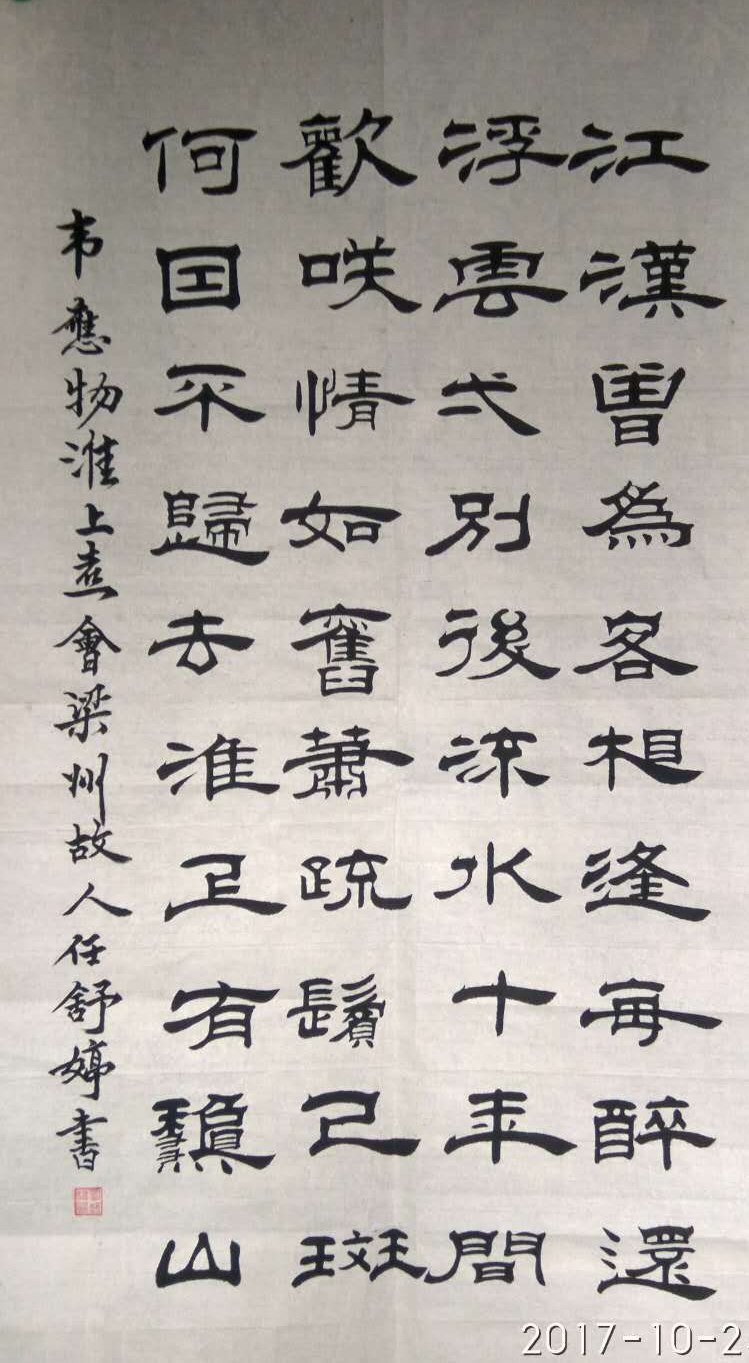 江漢曾為客相逢每醉還
浮雲弌別後流水十年間
歡咲情如舊蕭疏鬢已斑
何因不歸去淮上有山
韦應物淮上喜會梁州故人任舒婷書
2017-10-2